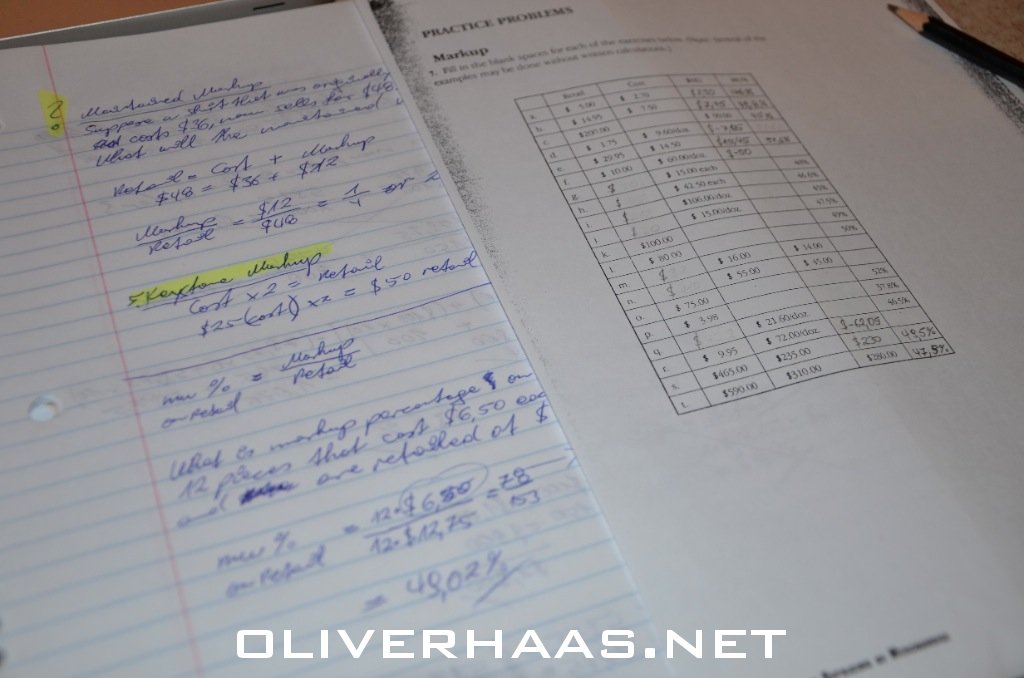 ?
Maintained Markup
Suppose a shirt that was originally
costs $36, now sells for $48.
What will the maintained
Retail = Cost + Markup
$48 = $36 + $12
Markup / Retail = $12 / $48 = 1/4 or 2
5. Keystone Markup
Cost x 2 = Retail
$25 (cost) x 2 = $50 retail
mu % on retail = Markup / Retail
What is markup percentage on
12 pieces that cost $6,50 eac
and are retailed at $
mu % on retail = 12 · $6,50 / 12 · $12,75 = 78 / 153
= 49,02%
PRACTICE PROBLEMS
Markup
1. Fill in the blank spaces for each of the exercises below. (Note: Several of the
examples may be done without written calculations.)
Retail Cost
a. $ 5.00
b. $ 14.95 $ 7.50
c. $200.00
d. $ 3.75 $ 9.60/doz
e. $ 29.95 $ 14.50
f. $ 10.00 $ 60.00/doz
g. $ $ 15.00 each 48%
h. $ $ 42.50 each 46.6%
i. $ $100.00/doz 45%
j. $ $ 15.00/doz 47.5%
k. $100.00 49%
l. $ 80.00 50%
m. $ $ 16.00 $ 14.00
n. $ $ 55.00 $ 45.00
o. $ 75.00 52%
p. $ 3.98 37.8%
q. $ $ 21.60/doz 46.5%
r. $ 9.95 $ 72.00/doz
s. $465.00 $235.00 $230 49,5%
t. $590.00 $310.00 $280.00 47,5%
OLIVERHAAS.NET